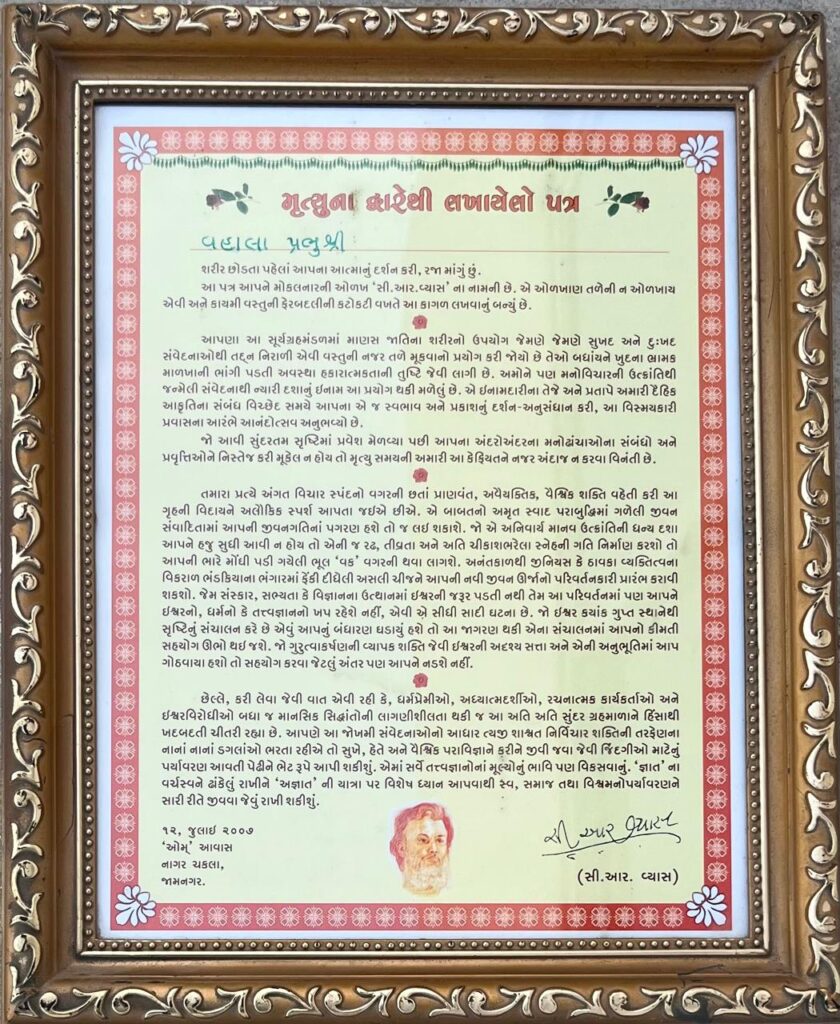 મૃત્યુના દ્વારેથી લખાયેલો પત્ર
વહાલા પ્રભુશ્રી
શરીર છોડતા પહેલાં આપના આત્માનું દર્શન કરી, રજા માંગું છું.
આ પત્ર આપને મોકલનારની ઓળખ ‘સી.આર.વ્યાસ’ ના નામની છે. એ ઓળખાણ તળેની ન ઓળખાય
એવી અને કાયમી વસ્તુની ફેરબદલીની કટોકટી વખતે આ કાગળ લખવાનું બન્યું છે.
આપણા આ સૂર્યગ્રહમંડળમાં માણસ જાતિના શરીરનો ઉપયોગ જેમણે જેમણે સુખદ અને દુઃખદ
સંવેદનાઓથી તદ્દન નિરાળી એવી વસ્તુની નજર તળે મૂકવાનો પ્રયોગ કરી જોયો છે તેઓ બધાંયને ખુદના ભ્રામક
માળખાની ભાંગી પડતી અવસ્થા હકારાત્મકતાની તુષ્ટિ જેવી લાગી છે. અમોને પણ મનોવિચારની ઉત્ક્રાંતિથી
જન્મેલી સંવેદનાથી ન્યારી દશાનું ઇનામ આ પ્રયોગ થકી મળેલું છે. એ ઇનામદારીના તેજે અને પ્રતાપે અમારી દૈહિક
આકૃતિના સંબંધ વિચ્છેદ સમયે આપના એ જ સ્વભાવ અને પ્રકાશનું દર્શન-અનુસંધાન કરી, આ વિસ્મયકારી
પ્રવાસના આરંભે આનંદોત્સવ અનુભવ્યો છે.
જો આવી સુંદરતમ સૃષ્ટિમાં પ્રવેશ મેળવ્યા પછી આપના અંદરોઅંદરના મનોઢાંચાઓના સંબંધો અને
પ્રવૃત્તિઓને નિસ્તેજ કરી મૂકેલ ન હોય તો મૃત્યુ સમયની અમારી આ કેફિયતને નજર અંદાજ ન કરવા વિનંતી છે.
તમારા પ્રત્યે અંગત વિચાર સ્પંદનો વગરની છતાં પ્રાણવંત, અવૈયક્તિક, વૈશ્વિક શક્તિ વહેતી કરી આ
ગૃહની વિદાયને અલૌકિક સ્પર્શ આપતા જઈએ છીએ. એ બાબતનો અમૃત સ્વાદ પરાબુદ્ધિમાં ગળેલી જીવન
સંવાદિતામાં આપની જીવનગતિનાં પગરણ હશે તો જ લઇ શકાશે. જો એ અનિવાર્ય માનવ ઉત્ક્રાંતિની ધન્ય દશા
આપને હજુ સુધી આવી ન હોય તો એની જ રઢ, તીવ્રતા અને અતિ ચીકાશભરેલા સ્નેહની ગતિ નિર્માણ કરશો તો
આપની ભારે મોંઘી પડી ગયેલી ભૂલ ‘વક’ વગરની થવા લાગશે. અનંતકાળથી જીનિયસ કે ઠાવકા વ્યક્તિત્વના
વિકરાળ ભંડકિયાના ભંગારમાં ફેંકી દીધેલી અસલી ચીજને આપની નવી જીવન ઊર્જાનો પરિવર્તનકારી પ્રારંભ કરાવી
શકશો. જેમ સંસ્કાર, સભ્યતા કે વિજ્ઞાનના ઉત્થાનમાં ઇશ્વરની જરૂર પડતી નથી તેમ આ પરિવર્તનમાં પણ આપને
ઇશ્વરનો, ધર્મનો કે તત્ત્વજ્ઞાનનો ખપ રહેશે નહીં, એવી એ સીધી સાદી ઘટના છે. જો ઇશ્વર કયાંક ગુપ્ત સ્થાનેથી
સૃષ્ટિનું સંચાલન કરે છે એવું આપનું બંધારણ ઘડાયું હશે તો આ જાગરણ થકી એના સંચાલનમાં આપનો કીમતી
સહયોગ ઊભો થઇ જશે. જો ગુરુત્વાકર્ષણની વ્યાપક શક્તિ જેવી ઇશ્વરની અદ્રશ્ય સત્તા અને એની અનુભૂતિમાં આપ
ગોઠવાયા હશો તો સહયોગ કરવા જેટલું અંતર પણ આપને નડશે નહીં.
છેલ્લે, કરી લેવા જેવી વાત એવી રહી કે, ધર્મપ્રેમીઓ, અધ્યાત્મદર્શીઓ, રચનાત્મક કાર્યકર્તાઓ અને
ઇશ્વરવિરોધીઓ બધા જ માનસિક સિદ્ધાંતોની લાગણીશીલતા થકી જ આ અતિ અતિ સુંદર ગ્રહમાળાને હિંસાથી
ખદબદતી ચીતરી રહ્યા છે. આપણે આ જોખમી સંવેદનાઓનો આધાર ત્યજી શાશ્વત નિર્વિચાર શક્તિની તરફેણના
નાનાં નાનાં ડગલાંઓ ભરતા રહીએ તો સુખે, હેતે અને વૈશ્વિક પરાવિજ્ઞાને કરીને જીવી જવા જેવી જિંદગીઓ માટેનું
પર્યાવરણ આવતી પેઢીને ભેટ રૂપે આપી શકીશું. એમાં સર્વે તત્ત્વજ્ઞાનોનાં મૂલ્યોનું ભાવિ પણ વિકસવાનું. ‘જ્ઞાત’ ના
વર્ચસ્વને ઢાંકેલું રાખીને ‘અજ્ઞાત’ ની યાત્રા પર વિશેષ ધ્યાન આપવાથી સ્વ, સમાજ તથા વિશ્વમનોપર્યાવરણને
સારી રીતે જીવવા જેવું રાખી શકીશું.
૧૨, જુલાઇ ૨૦૦૭
‘ઓમ્’ આવાસ
નાગર ચકલા,
જામનગર.
સી આર વ્યાસ
(સી.આર. વ્યાસ)